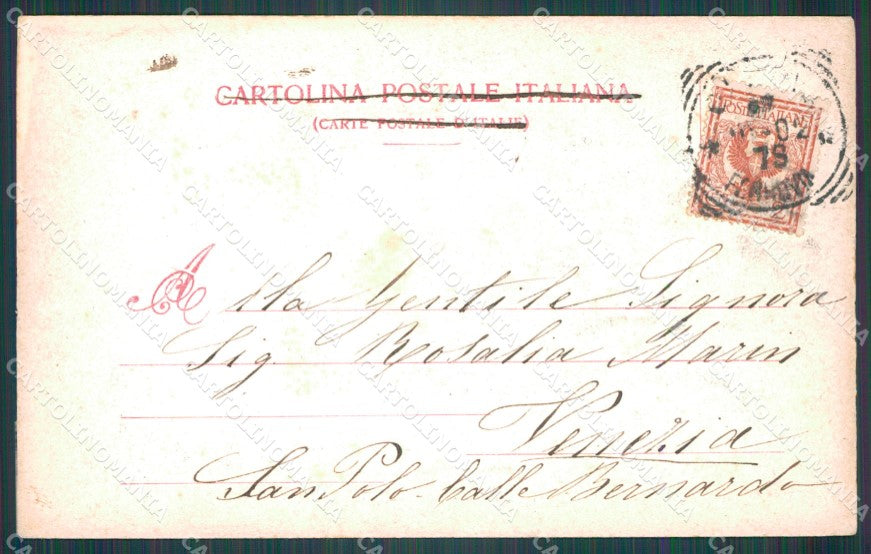 CARTOLINA POSTALE ITALIANA
(CARTE POSTALE D'ITALIE)
POSTE ITALIANE
02
FERROVIA
Alla Gentile Signora
Sig. Rosalia Marin
Venezia
San Polo - Calle Bernardo
CARTOLINOMANIA